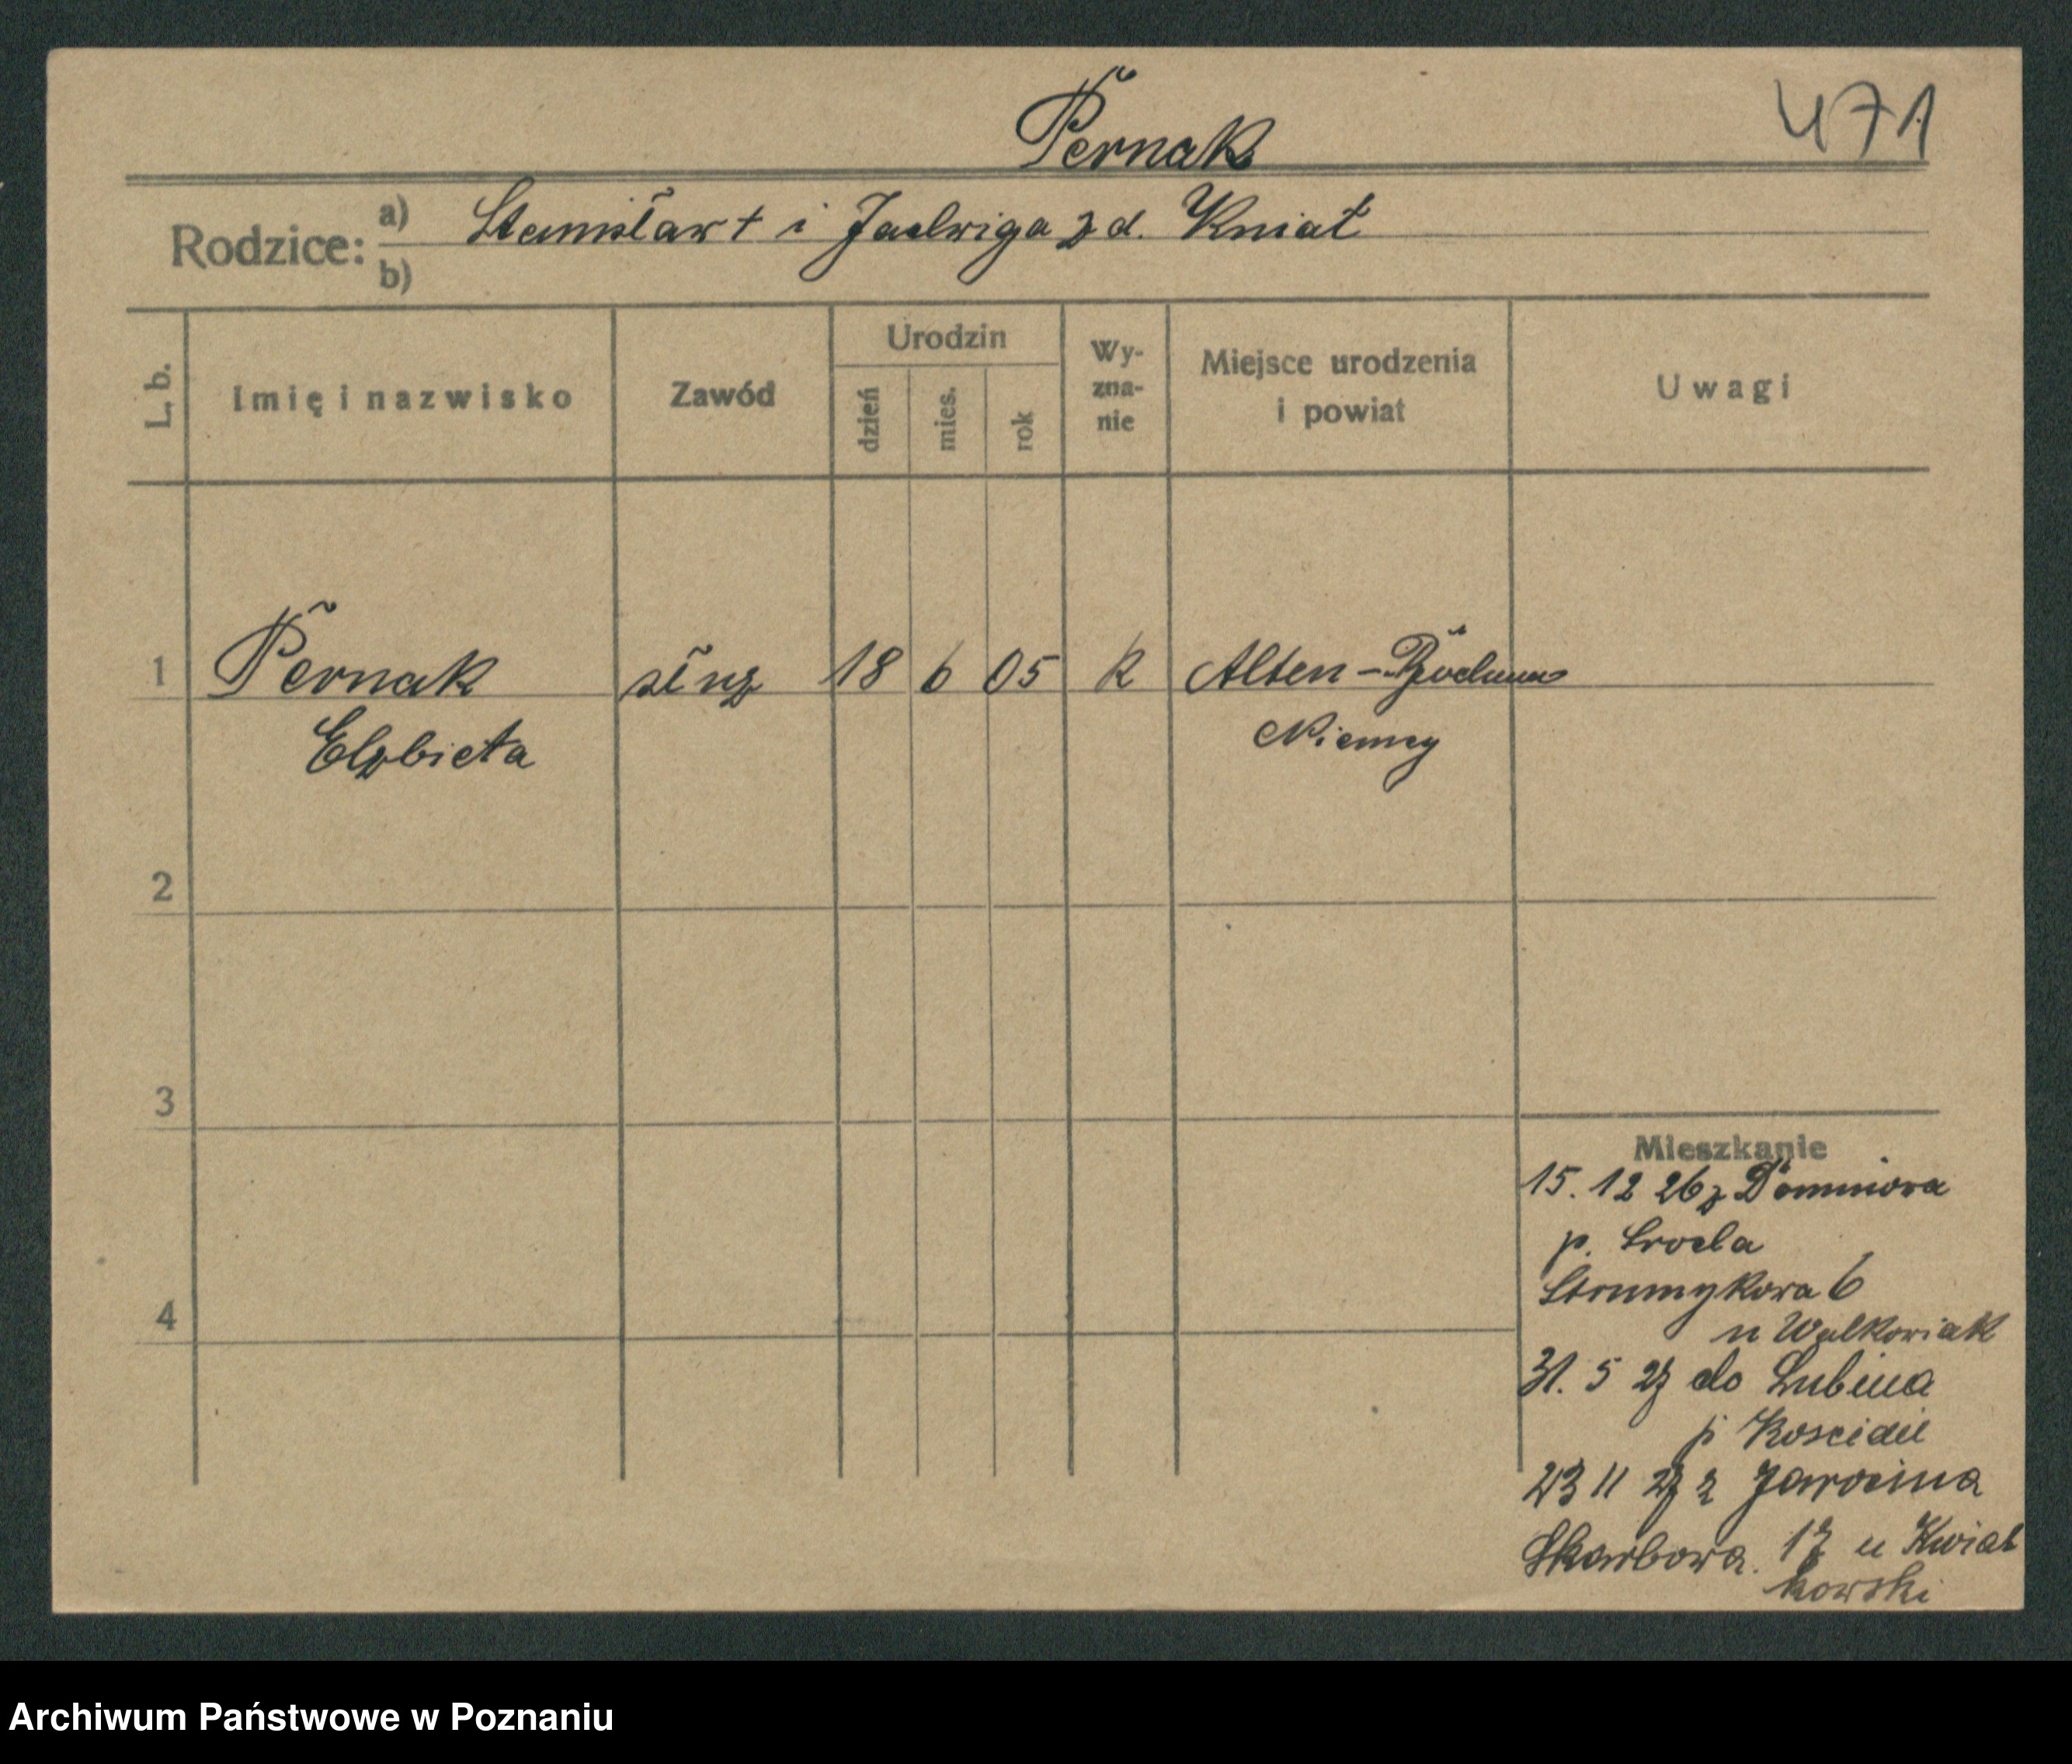 Pernak
471
Rodzice: a) Stanisław + i Jadwiga z d. Kniat
b)
L. b.
Imię i nazwisko
Zawód
Urodzin
dzień
mies.
rok
Wy-
zna-
nie
Miejsce urodzenia
i powiat
Uwagi
1 Pernak służ 18 6 05 k Alten-Bochum
Elzbieta Niemcy
2
3
4
Mieszkanie
15. 12 26 z Dominowa
p. Środa
Strumykowa 6
u Walkowiak
31. 5 27 do Lubinia
p
23 11 27 z Jarocina
Skarbowa. 17 u Kwiat
kowski
Archiwum Państwowe w Poznaniu